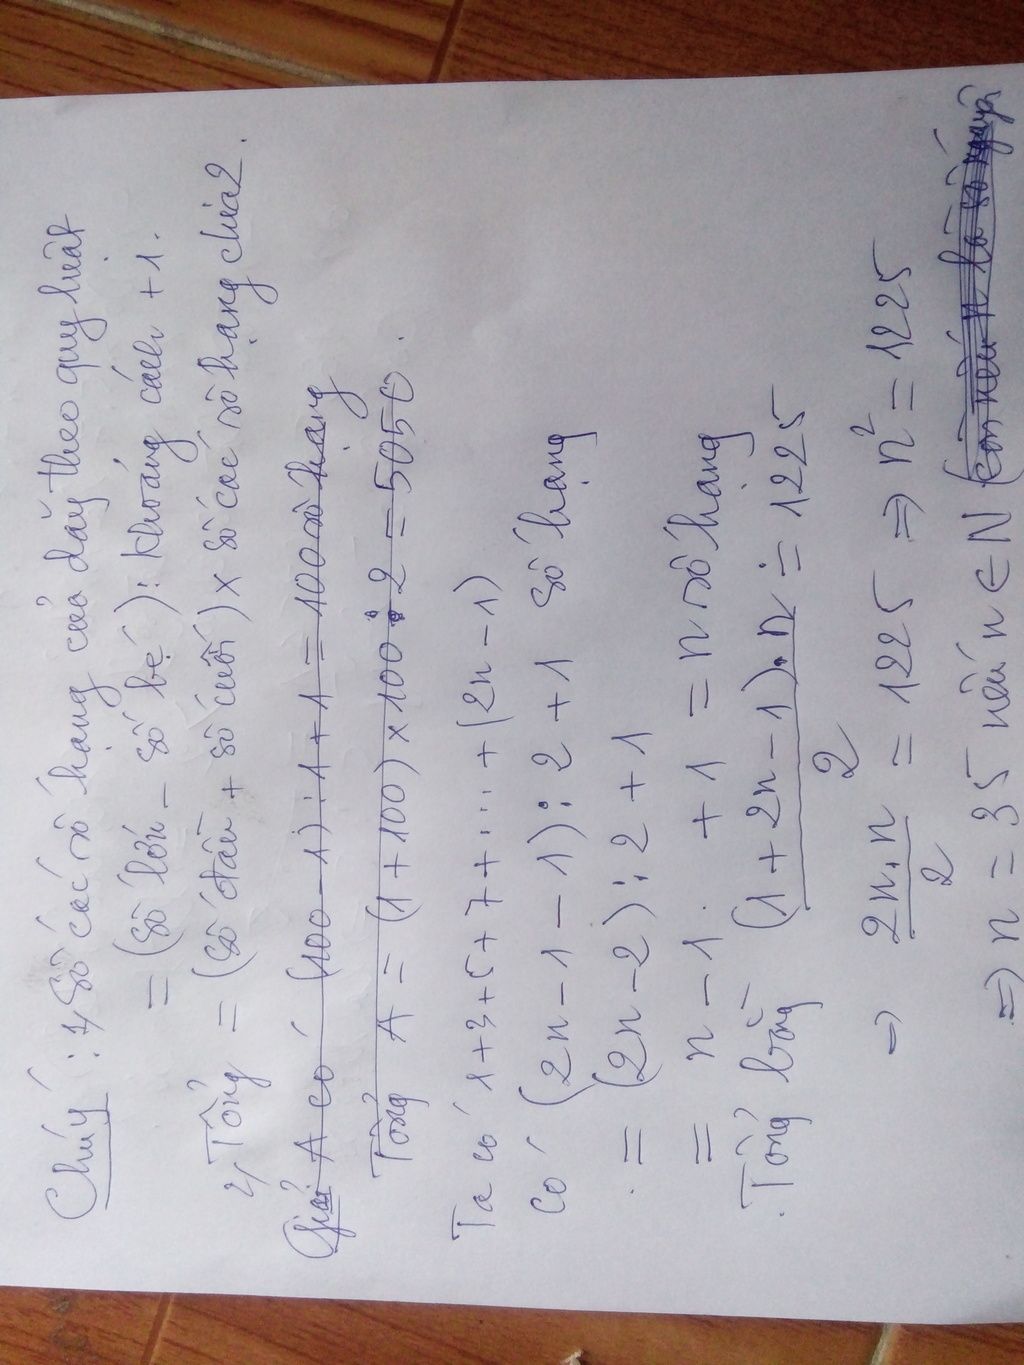 Chú ý : 1, Số các số hạng của dãy theo quy luật
= (số lớn - số bé) : khoảng cách + 1.
2, Tổng = (số đầu + số cuối) x số các số hạng chia 2.
Giải A có (100 - 1) : 1 + 1 = 100 số hạng
Tổng A = (1 + 100) x 100 : 2 = 5050.
Ta có 1+3+5+7+...+(2n-1)
Có (2n-1-1) : 2 + 1 số hạng
= (2n-2) : 2 + 1
= n - 1 + 1 = n số hạng
Tổng bằng (1+2n-1).n / 2 = 1225
⇒ 2n.n / 2 = 1225 ⇒ n² = 1225
⇒ n = 35 nếu n ∈ N